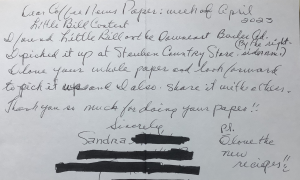 Dear Coffee News Paper: week of April
Little Bill Contest 2023
I found Little Bill on the Downeast
(By the right
I picked it up at Steuben Country Store.
I love your whole paper and look forward
to pick it up and I also share it with others.
Thank you so much for doing your paper!!
Sincerely,
Sandra
P.S.
I love the
new
recipes!!